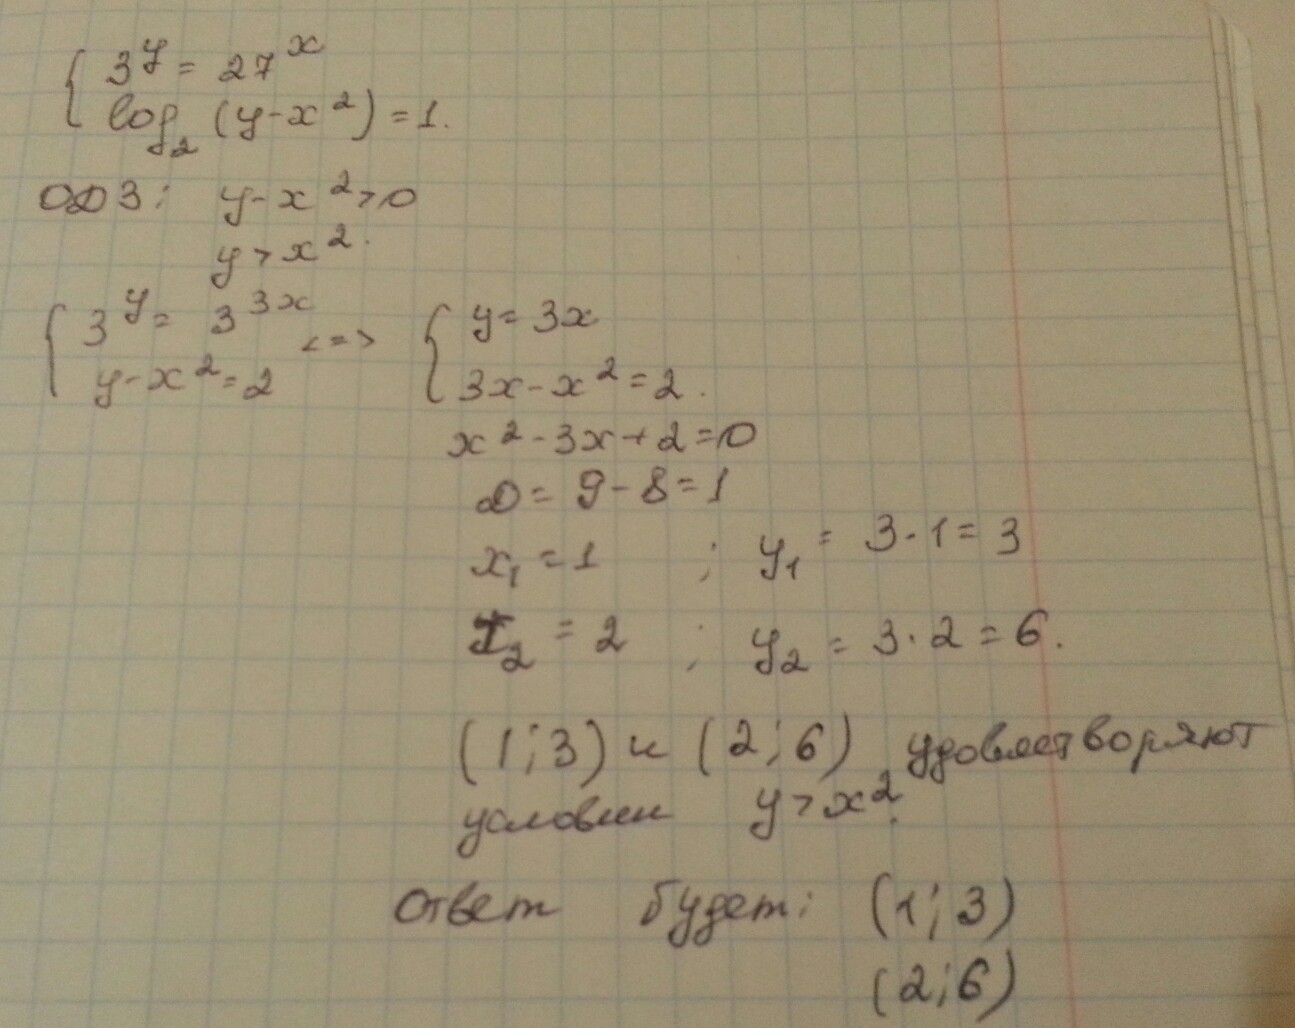 { 3^y = 27^x
log₂ (y-x²) = 1.
ОДЗ: y-x²>0
y > x².
{ 3^y = 3^3x <=> { y = 3x
y-x² = 2 3x-x² = 2.
x²-3x+2=0
D = 9-8=1
x₁ = 1 ; y₁ = 3·1 = 3
x₂ = 2 ; y₂ = 3·2 = 6.
(1;3) и (2;6) удовлетворяют
условии y > x².
ответ будет: (1;3)
(2;6)